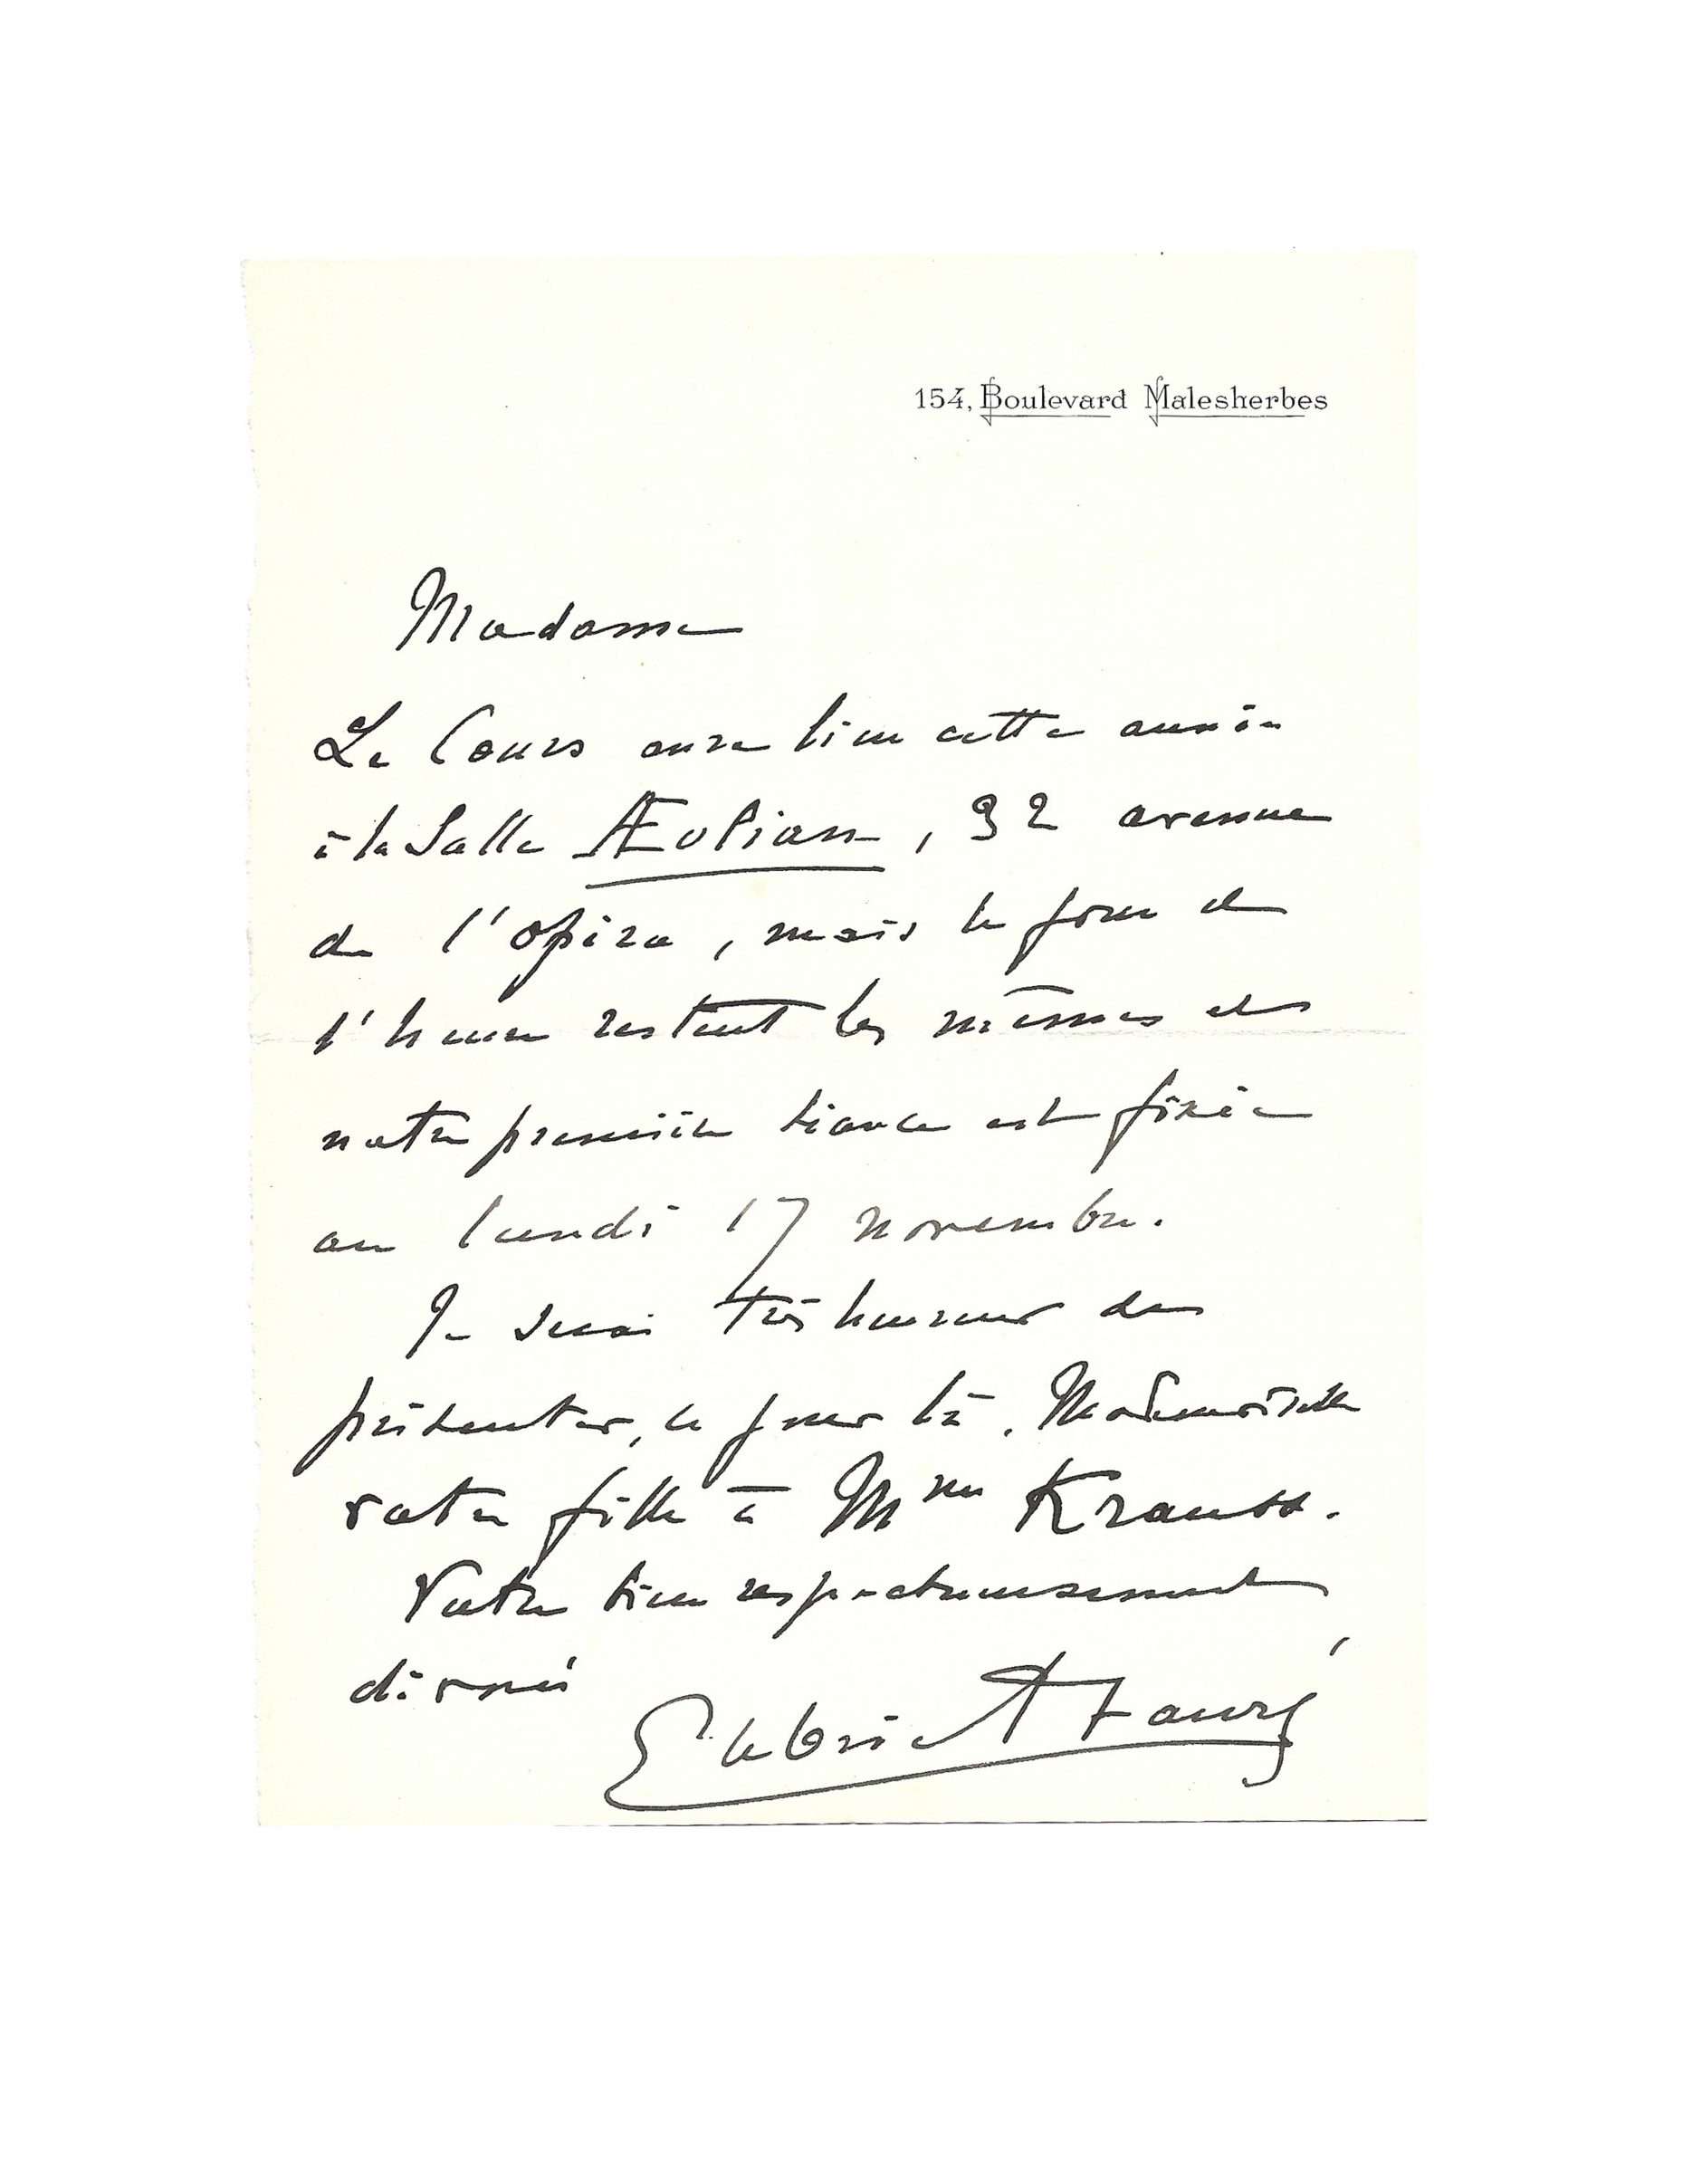 154, Boulevard Malesherbes
Madame
Le Cours aura lieu cette année
à la Salle Æolian, 32 avenue
de l'opéra, mais le jour et
l'heure restent les mêmes et
notre première séance est fixée
au lundi 17 novembre.
Je serai très heureux de
présenter, ce jour là, Mademoiselle
votre fille à Mme Krauss.
Votre bien respectueusement
dévoué
Gabriel Fauré